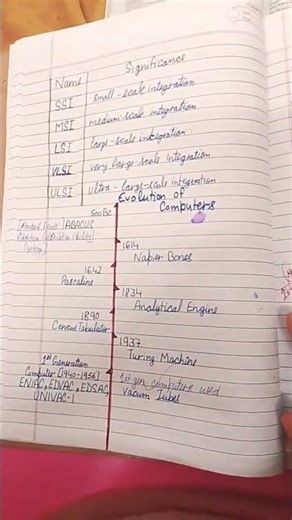 Name Significance
SSI small-scale integration
MSI medium-scale integration
LSI large-scale integration
VLSI very large-scale integration
ULSI ultra-large-scale integration
Evolution of
Computers
500 BC
ABACUS
1614
Napier Bones
1642
Pascaline
1834
Analytical Engine
1890
Census Tabulator
1937
Turing Machine
1st Generation
Computer (1940-1956)
ENIAC, EDVAC, EDSAC,
UNIVAC-1
1st gen computers used
Vacum Tubes